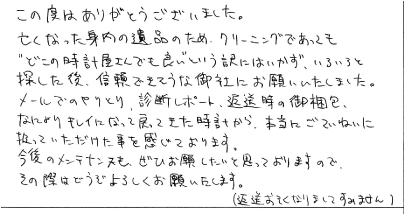 この度はありがとうございました。
亡くなった身内の遺品のため、クリーニングであっても
"どこの時計屋さんでも良い"という訳にはいかず、いろいろと
探した後、信頼できそうな御社にお願いいたしました。
メールでのやりとり、診断レポート、返送時の御梱包、
なによりキレイになって戻ってきた時計から、本当にていねいに
扱っていただけた事を感じております。
今後のメンテナンスも、ぜひお願したいと思っておりますので、
その際はどうぞよろしくお願いいたします。
(返送おそくなりましてすみません)